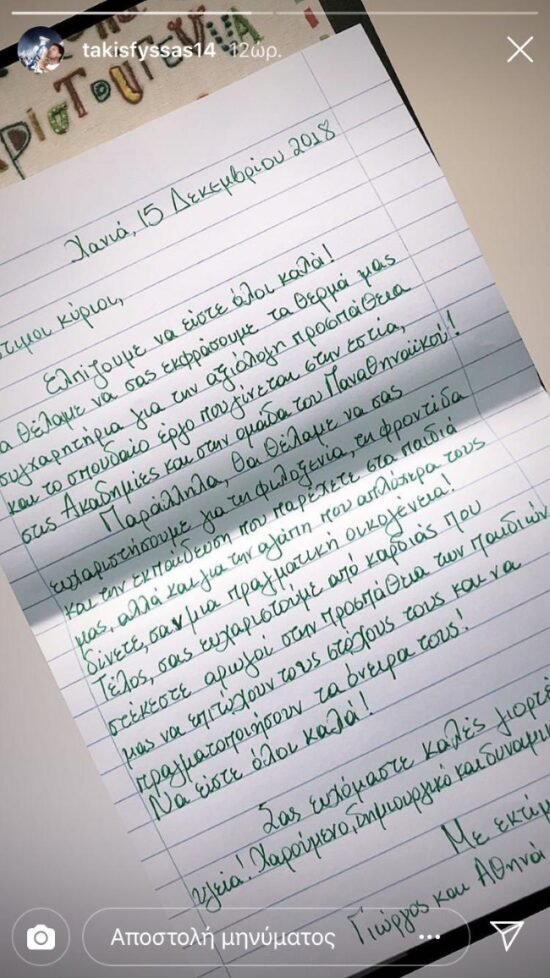 takisfyssas14 12ώρ.
ΡΙΣΤΟΥΓΕΝΝΑ
Χανιά, 15 Δεκεμβρίου 2018
τιμοι κύριοι,
Ελπίζουμε να είστε όλοι καλά!
α θέλαμε να σας εκφράσουμε τα θερμά μας
συγχαρητήρια για την αξιόλογη προσπάθεια
και το σπουδαίο έργο που γίνεται στην εστία,
στις Ακαδημίες και στην ομάδα του Παναθηναϊκού!
Παράλληλα, θα θέλαμε να σας
ευχαριστήσουμε για τη φιλοξενία, τη φροντίδα
και την εκπαίδευση που παρέχετε στα παιδιά
μας, αλλά και για την αγάπη που απλόχερα τους
δίνετε, σαν μια πραγματική οικογένεια!
Τέλος, σας ευχαριστούμε από καρδιάς που
στέκεστε αρωγοί στην προσπάθεια των παιδιών
μας να επιτύχουν τους στόχους τους και να
πραγματοποιήσουν τα όνειρα τους!
Να είστε όλοι καλά!
Σας ευχόμαστε καλές γιορτέ
υγεία! Χαρούμενο, δημιουργικό και δυναμικ
Με εκτίμ
Γιώργος και Αθηνά
Αποστολή μηνύματος